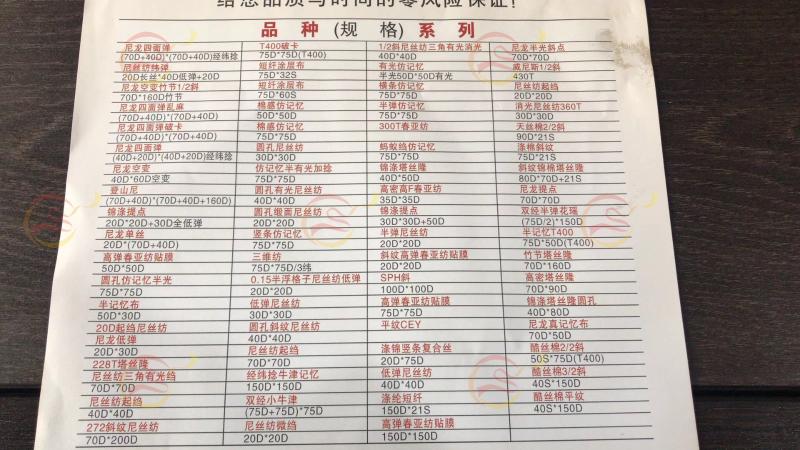 给您品质与时间的零风险保证!
品 种 (规 格) 系 列
尼龙四面弹 T400破卡 1/2斜尼丝纺三角有光消光 尼龙半光斜点
(70D+40D)*(70D+40D)经纬捻 75D*75D(T400) 40D*40D 70D*70D
尼丝纺纬弹 短纤涂层布 有光仿记忆 威尼斯1/2斜
20D长丝*40D低弹+20D 75D*32S 半光50D*50D有光 430T
尼龙空变竹节1/2斜 短纤涂层布 横条仿记忆 尼丝纺起绉
70D*160D竹节 75D*60S 75D*75D 20D*20D
尼龙四面弹乱麻 棉感仿记忆 半弹仿记忆 消光尼丝纺360T
(70D+40D)*(70D+40D) 50D*50D 75D*75D 30D*30D
尼龙四面弹破卡 棉感仿记忆 300T春亚纺 天丝棉2/2斜
(70D+40D)*(70D+40D) 75D*75D 90D*21S
尼龙四面弹 圆孔尼丝纺 蚂蚁绉仿记忆 涤棉斜纹
(40D+20D)*(40D+20D)经纬捻 30D*30D 75D*75D 75D*21S
尼龙空变 仿记忆半有光加捻 锦涤塔丝隆 斜纹锦棉塔丝隆
40D*60D空变 75D*75D 40D*50D 80D*70D+21S
登山尼 圆孔有光尼丝纺 高密高F春亚纺 尼龙提点
(70D+40D)*(70D+40D+160D) 40D*40D 35D*35D 70D*70D
锦涤提点 圆孔缎面尼丝纺 锦涤提点 双经半弹花瑶
20D*20D+30D全低弹 20D*20D 30D*30D+50D (75D/2)*150D
尼龙单丝 竖条仿记忆 半弹尼丝纺 半记忆T400
20D*(70D+40D) 75D*75D 20D*20D 75D*50D(T400)
高弹春亚纺贴膜 三维纺 斜纹高弹春亚纺贴膜 竹节塔丝隆
50D*50D 75D*75D/3纬 20D*20D 70D*160D
圆孔仿记忆半光 0.15半浮格子尼丝纺低弹 SPH斜 高密塔丝隆
75D*75D 20D*20D 100D*100D 70D*90D
半记忆布 低弹尼丝纺 高弹春亚纺贴膜 锦涤塔丝隆圆孔
50D*30D 30D*30D 75D*75D 40D*80D
20D起绉尼丝纺 圆孔斜纹尼丝纺 平纹CEY 尼龙真记忆布
尼龙低弹 40D*40D 50D*70D
20D*30D 尼丝纺起绉 涤锦竖条复合丝 酷丝棉2/2斜
228T塔丝隆 20D*20D 20D*75D 50S*75D(T400)
尼丝纺三角有光绉 经纬捻牛津记忆 低弹尼丝纺 酷丝棉3/2斜
70D*70D 150D*150D 40D*40D 40S*150D
尼丝纺起绉 双经小牛津 涤纶短纤 酷丝棉平纹
40D*40D (75D+75D)*75D 150D*21S 40S*150D
272斜纹尼丝纺 尼丝纺微绉 高弹春亚纺贴膜
70D*200D 20D*20D 150D*150D